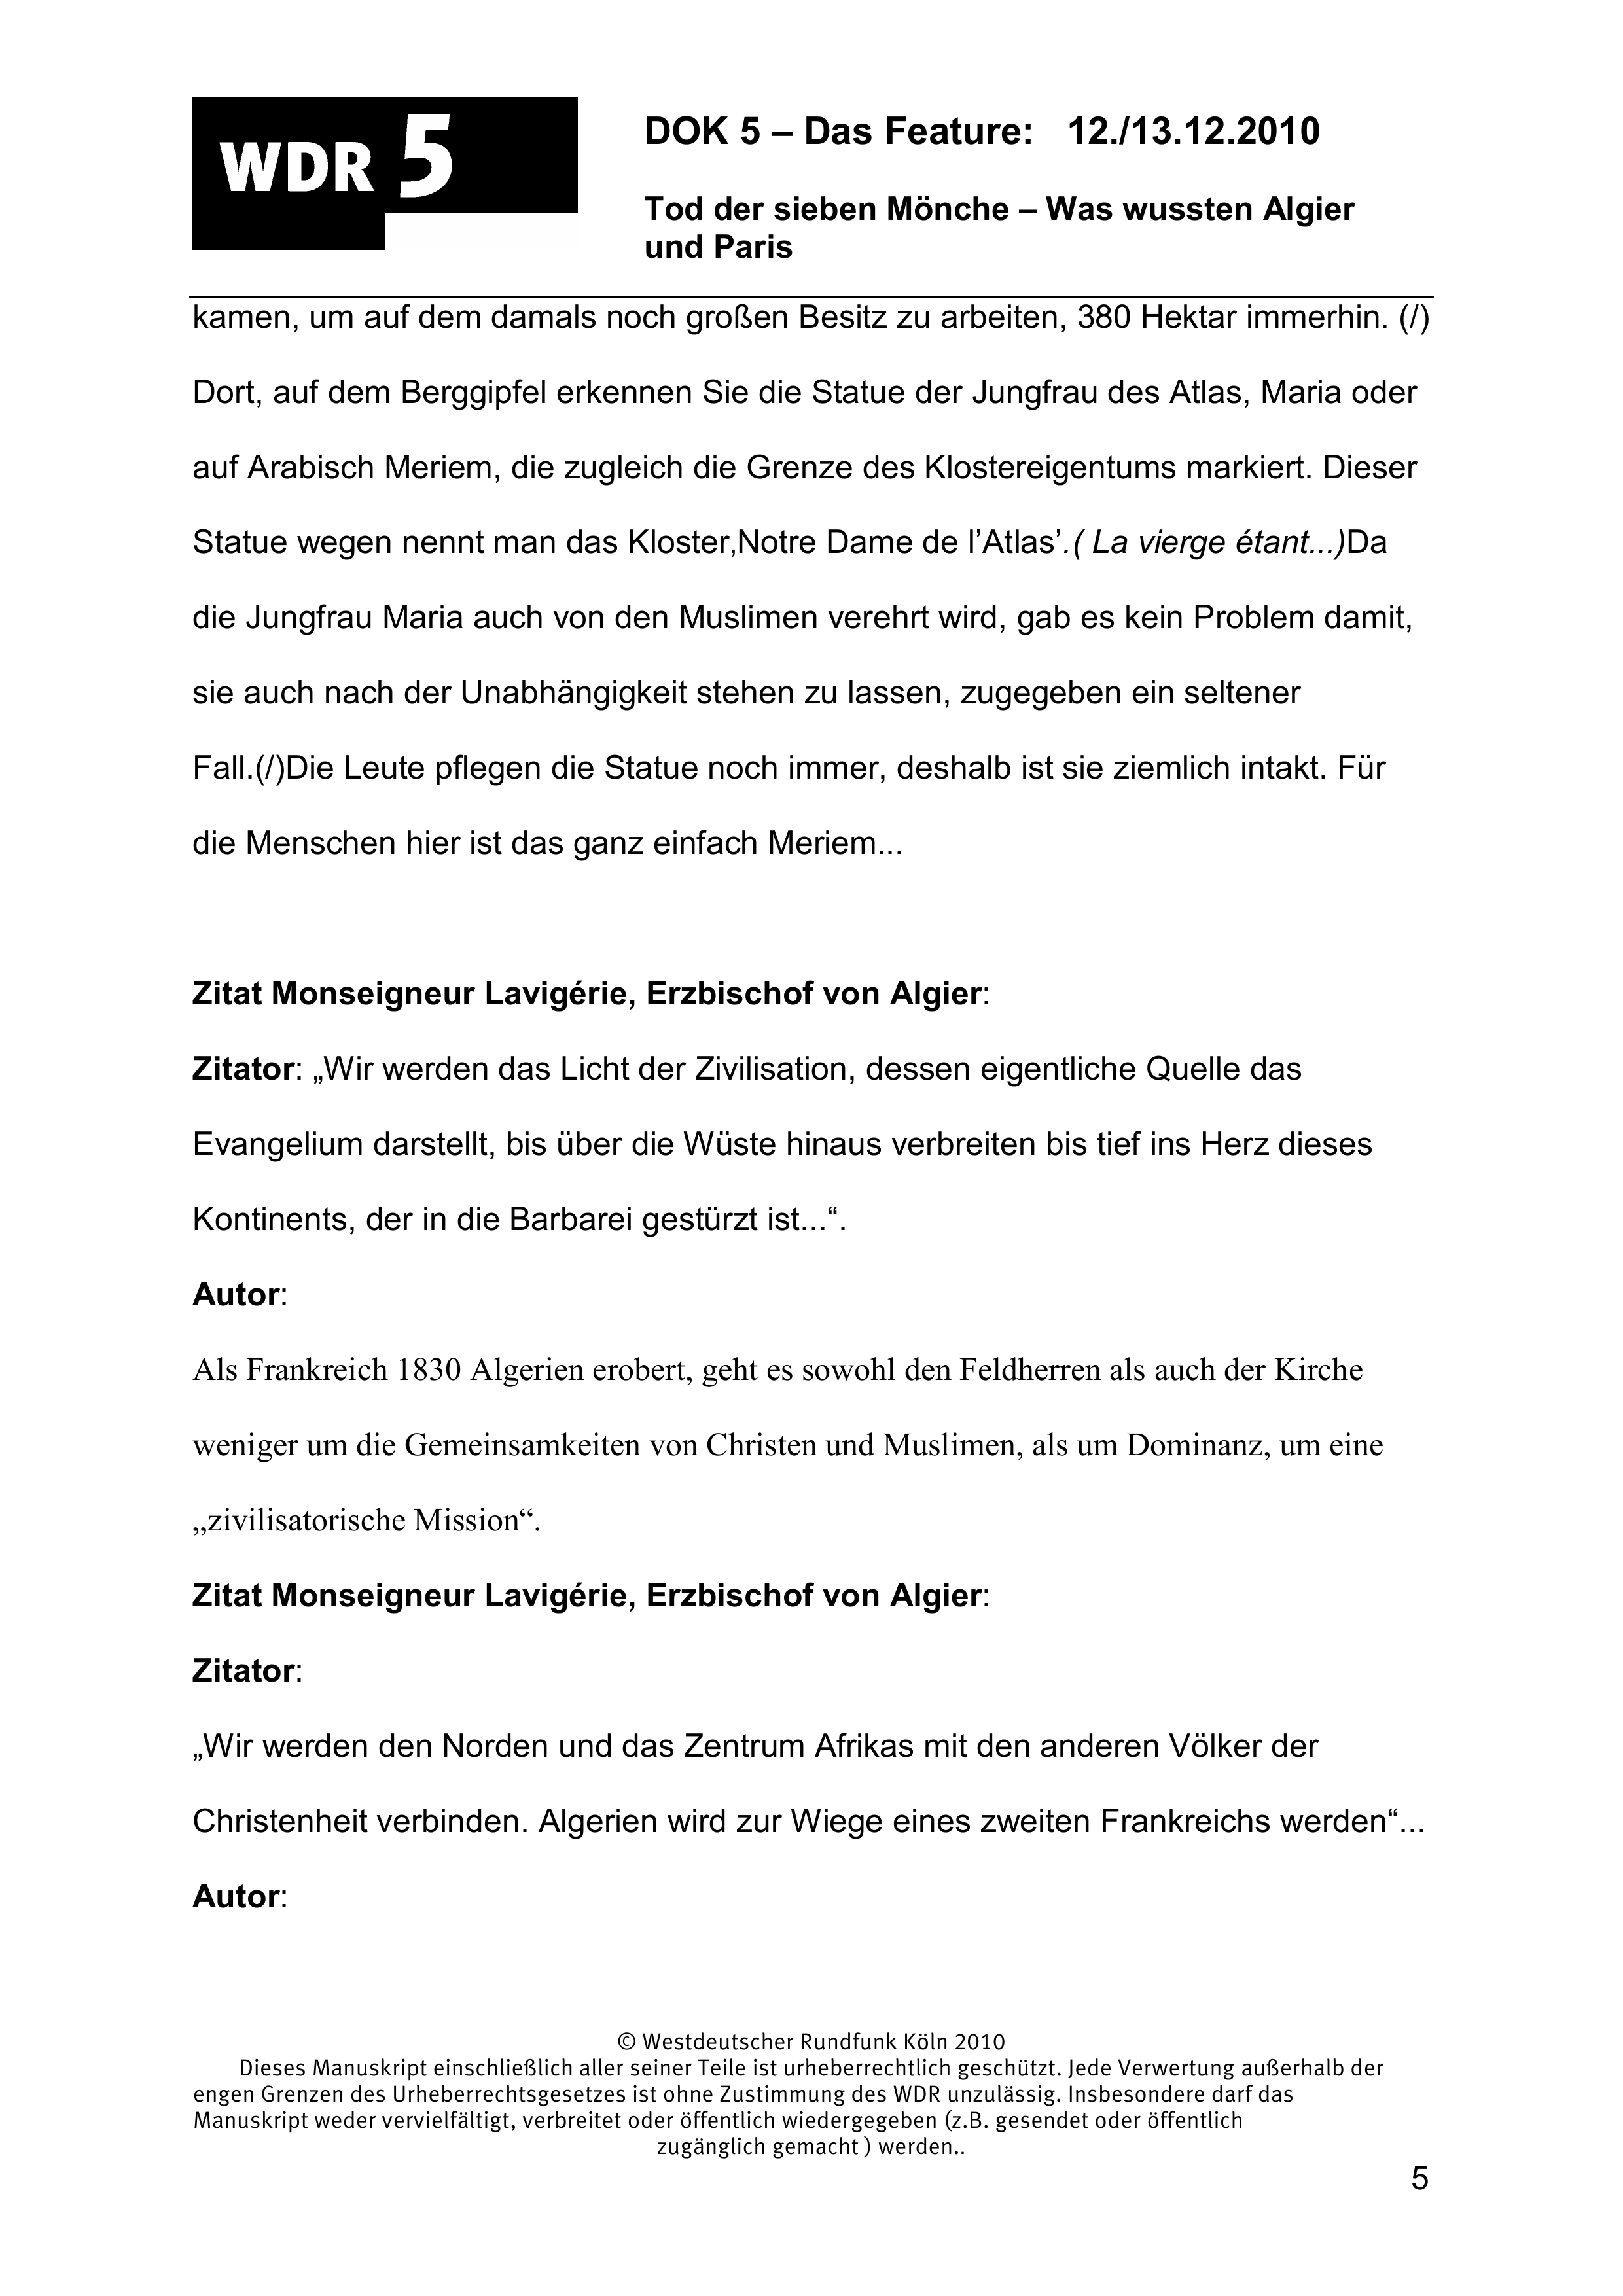 WDR 5
DOK 5 – Das Feature: 12./13.12.2010
Tod der sieben Mönche – Was wussten Algier
und Paris
kamen, um auf dem damals noch großen Besitz zu arbeiten, 380 Hektar immerhin. (/)
Dort, auf dem Berggipfel erkennen Sie die Statue der Jungfrau des Atlas, Maria oder
auf Arabisch Meriem, die zugleich die Grenze des Klostereigentums markiert. Dieser
Statue wegen nennt man das Kloster‚Notre Dame de l’Atlas’.( La vierge étant...)Da
die Jungfrau Maria auch von den Muslimen verehrt wird, gab es kein Problem damit,
sie auch nach der Unabhängigkeit stehen zu lassen, zugegeben ein seltener
Fall.(/)Die Leute pflegen die Statue noch immer, deshalb ist sie ziemlich intakt. Für
die Menschen hier ist das ganz einfach Meriem...
Zitat Monseigneur Lavigérie, Erzbischof von Algier:
Zitator: „Wir werden das Licht der Zivilisation, dessen eigentliche Quelle das
Evangelium darstellt, bis über die Wüste hinaus verbreiten bis tief ins Herz dieses
Kontinents, der in die Barbarei gestürzt ist...“.
Autor:
Als Frankreich 1830 Algerien erobert, geht es sowohl den Feldherren als auch der Kirche
weniger um die Gemeinsamkeiten von Christen und Muslimen, als um Dominanz, um eine
„zivilisatorische Mission“.
Zitat Monseigneur Lavigérie, Erzbischof von Algier:
Zitator:
„Wir werden den Norden und das Zentrum Afrikas mit den anderen Völker der
Christenheit verbinden. Algerien wird zur Wiege eines zweiten Frankreichs werden“...
Autor:
© Westdeutscher Rundfunk Köln 2010
Dieses Manuskript einschließlich aller seiner Teile ist urheberrechtlich geschützt. Jede Verwertung außerhalb der
engen Grenzen des Urheberrechtsgesetzes ist ohne Zustimmung des WDR unzulässig. Insbesondere darf das
Manuskript weder vervielfältigt, verbreitet oder öffentlich wiedergegeben (z.B. gesendet oder öffentlich
zugänglich gemacht ) werden..
5